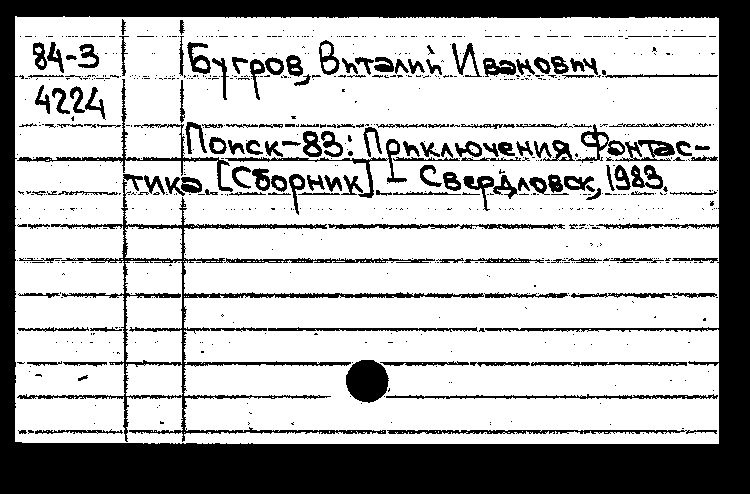 84-3 Бугров, Виталий Иванович.
4224
Поиск-83: Приключения. Фантас-
тика. [Сборник]. - Свердловск, 1983.